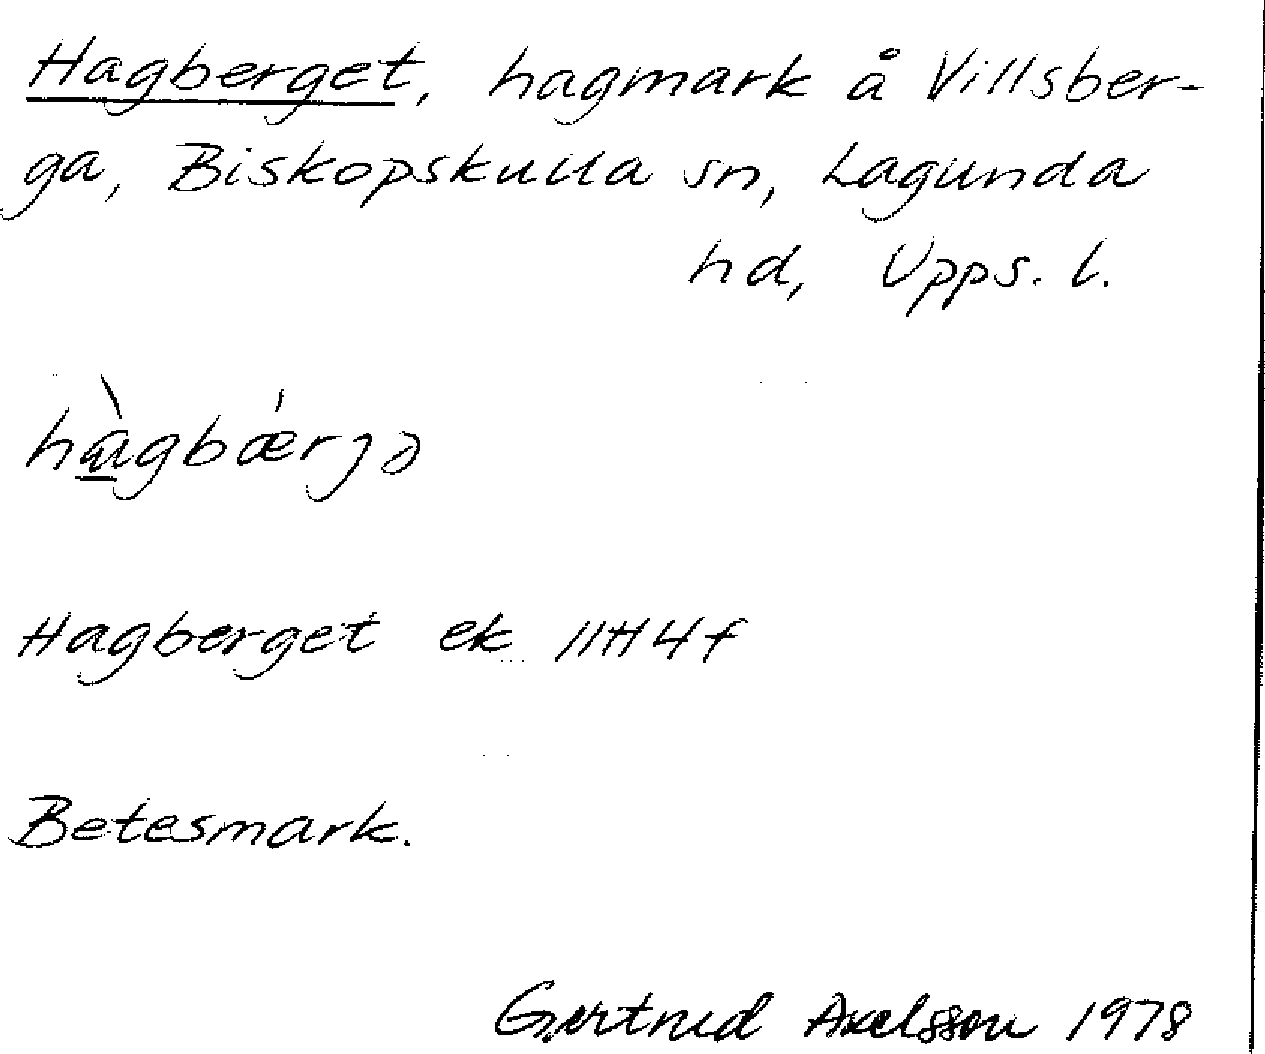 Hagberget, hagmark å Villsber-
ga, Biskopskulla sn, Lagunda
hd, Upps. l.
hàgbǽrjə
Hagberget ek 11H4f
Betesmark.
Gertrud Axelsson 1978